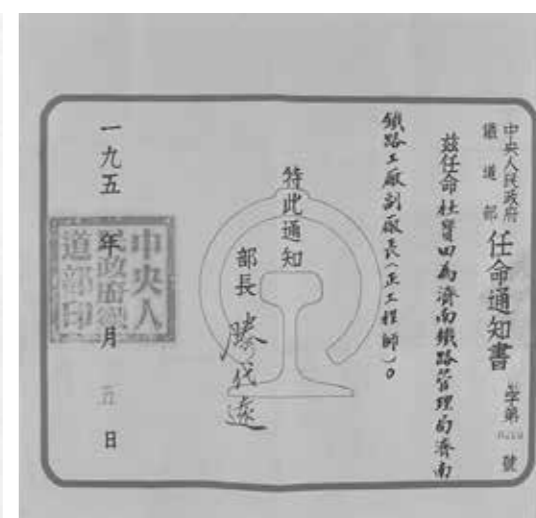 中央人民政府
鐵道部
任命通知書
字第
號
茲任命杜寶田為濟南鐵路管理局濟南
鐵路工廠副廠長（正工程師）。
特此通知
部長
滕代遠
一九五 年 月 五 日
中央人
民政府鐵
道部印